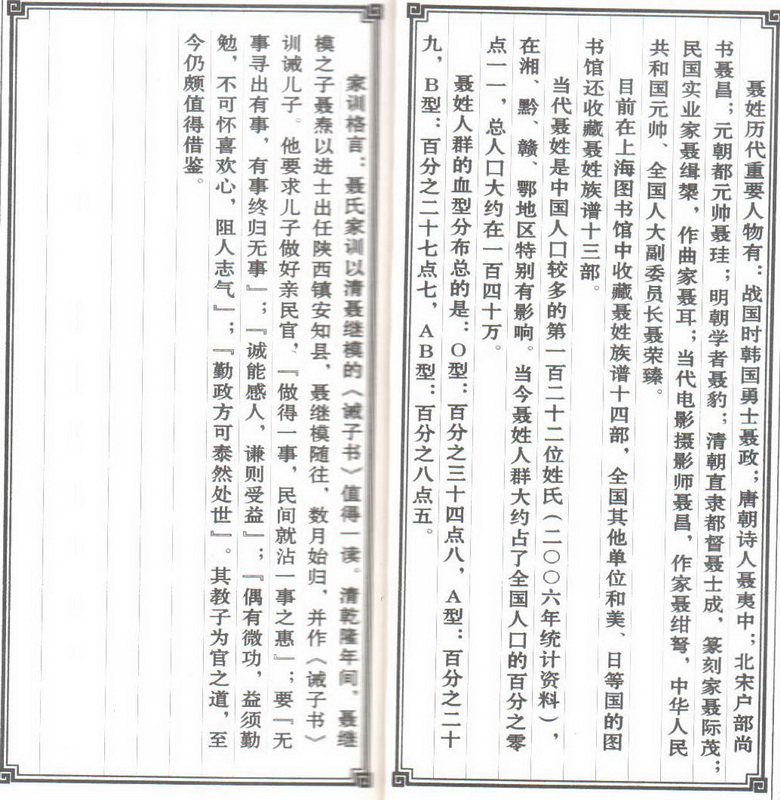 聂姓历代重要人物有：战国时韩国勇士聂政；唐朝诗人聂夷中；北宋户部尚
书聂昌；元朝都元帅聂珪；明朝学者聂豹；清朝直隶都督聂士成，篆刻家聂际茂；
民国实业家聂缉椝，作曲家聂耳；当代电影摄影师聂昌，作家聂绀弩，中华人民
共和国元帅、全国人大副委员长聂荣臻。
目前在上海图书馆中收藏聂姓族谱十四部，全国其他单位和美、日等国的图
书馆还收藏聂姓族谱十三部。
当代聂姓是中国人口较多的第一百二十二位姓氏（二〇〇六年统计资料），
在湘、黔、赣、鄂地区特别有影响。当今聂姓人群大约占了全国人口的百分之零
点一一，总人口大约在一百四十万。
聂姓人群的血型分布总的是：O型：百分之三十四点八，A型：百分之二十
九，B型：百分之二十七点七，AB型：百分之八点五。
家训格言：聂氏家训以清聂继模的《诫子书》值得一读。清乾隆年间，聂继
模之子聂焘以进士出任陕西镇安知县，聂继模随往，数月始归，并作《诫子书》
训诫儿子。他要求儿子做好亲民官，『做得一事，民间就沾一事之惠』；要『无
事寻出有事，有事终归无事』；『诚能感人，谦则受益』；『偶有微功，益须勤
勉，不可怀喜欢心，阻人志气』；『勤政方可泰然处世』。其教子为官之道，至
今仍颇值得借鉴。